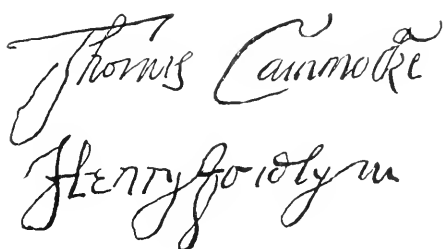 Thomas Cammocke
Henry Josselyn